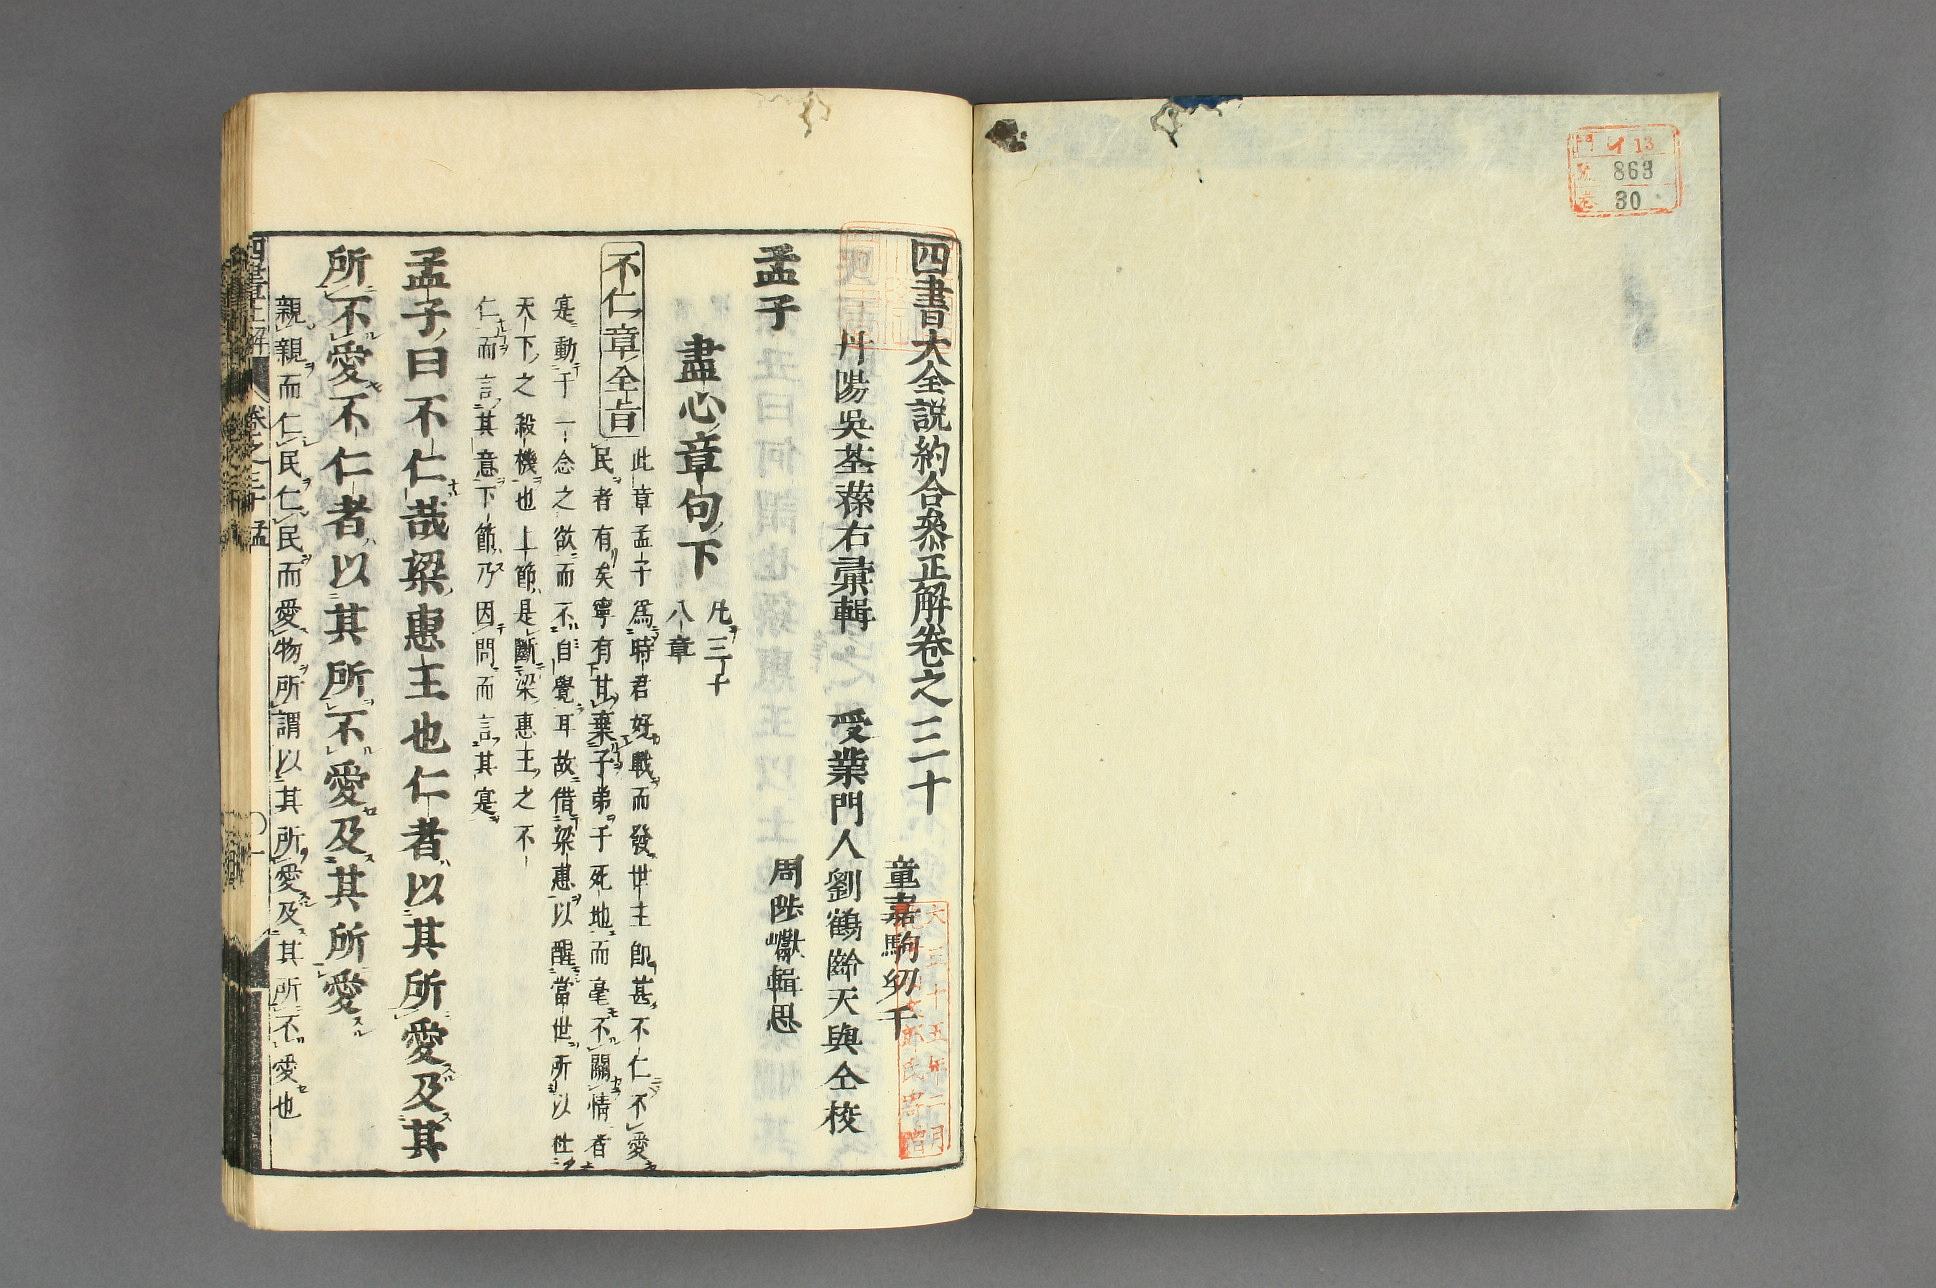 門 イ 13
號 863
卷 30
四書大全説約合叅正解卷之三十
丹陽吳荃蓀右彙輯
受業門人劉鶴齡天與仝校
童嘉駒切千
周陛巘輯思
孟子
盡心章句下
凡三十
八章
不仁章全旨
此章孟子爲時君好戰而發世主卽甚不仁不愛
民者有矣寧有甘棄子弟于死地而毫不關情者
寔動于一念之欲而不自覺耳故借梁惠以醒當世所以杜
天下之殺機也上節是斷梁惠王之不
仁而言其意下節乃因問而言其寔
孟子曰不仁哉梁惠王也仁者以其所愛及其
所不愛不仁者以其所不愛及其所愛
親親而仁民仁民而愛物所謂以其所愛及其所不愛也
四書正解
卷之三十 孟